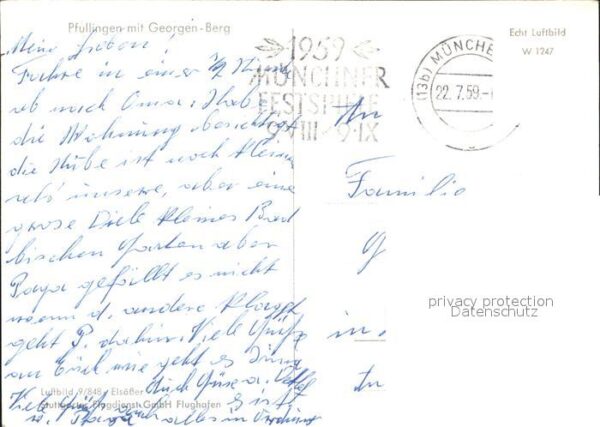 Pfullingen mit Georgen-Berg
Echt Luftbild
W 1247
1959
MÜNCHNER
FESTSPIELE
9·VIII – 9·IX
(13b) MÜNCHE
22.7.59.-
Meine Lieben!
Fahre in einer 1/2
ab nach Omar. Habe
die Wohnung besichtigt
die Stube ist noch kleiner
als unsere, aber eine
grose Diele kleines Bad
bischen Garten aber
Papa gefällt es nicht
wenn d. andere klappt
geht P. dahin. Viele Grüße
an Euch wie geht es
Viele Grüße
es ist
alles in Ordnung
An
Familie
G
in
privacy protection
Datenschutz
Luftbild 9/848 Elsäßer
Stuttgarter Flugdienst GmbH Flughafen